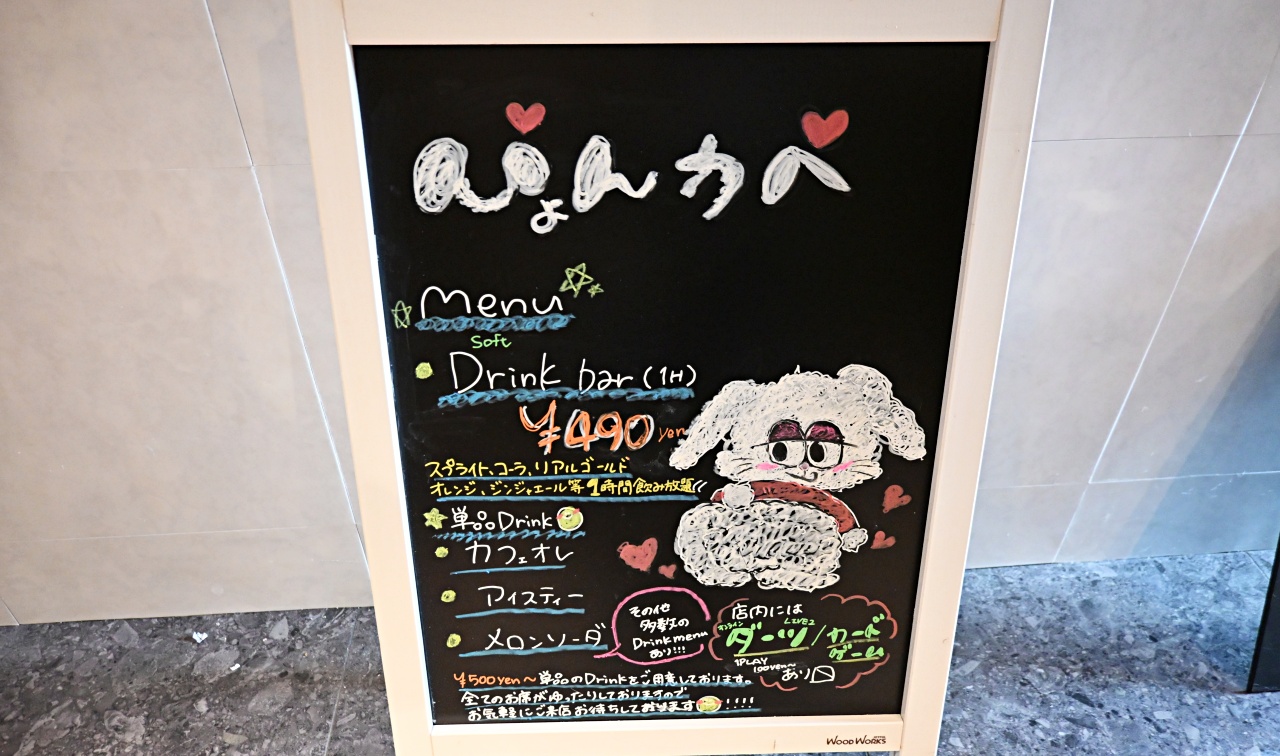 ぴょんカペ
Menu
Soft
Drink bar (1H)
¥490 yen
スプライト、コーラ、リアルゴールド
オレンジ、ジンジャエール等 1時間飲み放題
単品Drink
カフェオレ
アイスティー
メロンソーダ
その他
多数の
Drink menu
あり!!!
店内には
オンライン LIVE2
ダーツ / カード
ゲーム
1PLAY
100yen〜
あり
¥500yen〜単品のDrinkをご用意しております。
全てのお席がゆったりしておりますので
お気軽にご来店お待ちしております!!!!
WOODWORKS